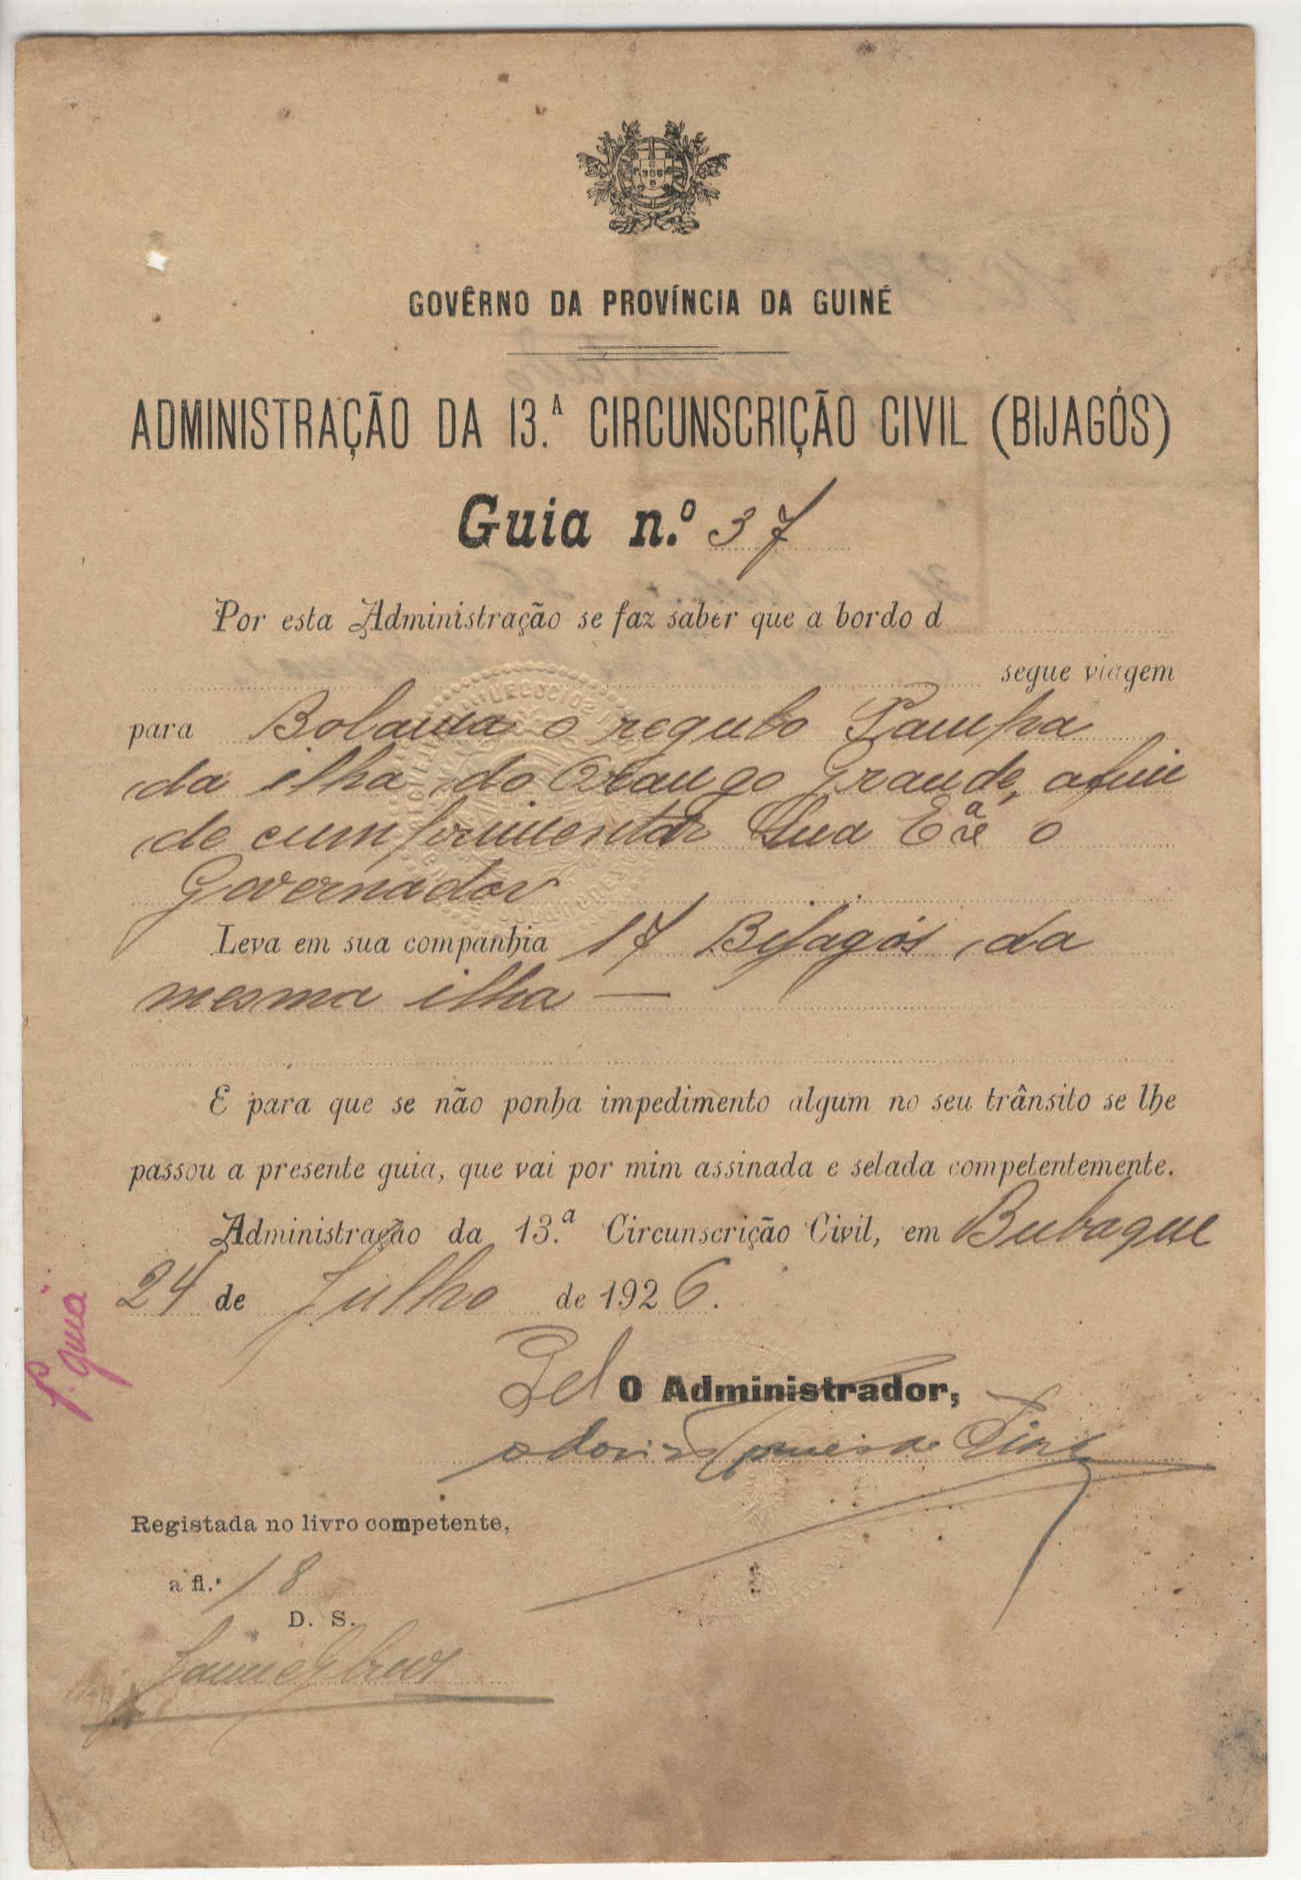 GOVÊRNO DA PROVÍNCIA DA GUINÉ
ADMINISTRAÇÃO DA 13.ª CIRCUNSCRIÇÃO CIVIL (BIJAGÓS)
Guia n.º 37
Por esta Administração se faz saber que a bordo d
segue viagem
para Bolama o regulo Pampa
da ilha do Orango Grande, afim
de cumprimentar Sua Exª o
Governador
Leva em sua companhia 17 Bijagós da
mesma ilha —
E para que se não ponha impedimento algum no seu trânsito se lhe
passou a presente guia, que vai por mim assinada e selada competentemente.
Administração da 13.ª Circunscrição Civil, em Bubaque
24 de Julho de 1926.
Pel O Administrador,
Registada no livro competente,
a fl. 18
D. S.
guia